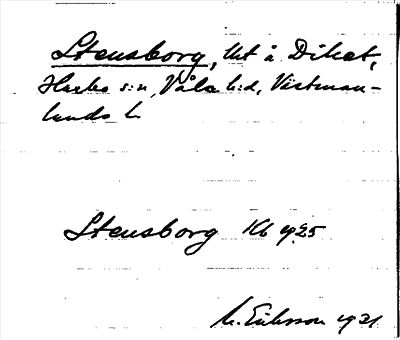 Stensborg, lht å Diket,
Harbo s:n, Våla h:d, Västman-
lands l.
Stensborg Kb 1925
M. Eriksson 1931